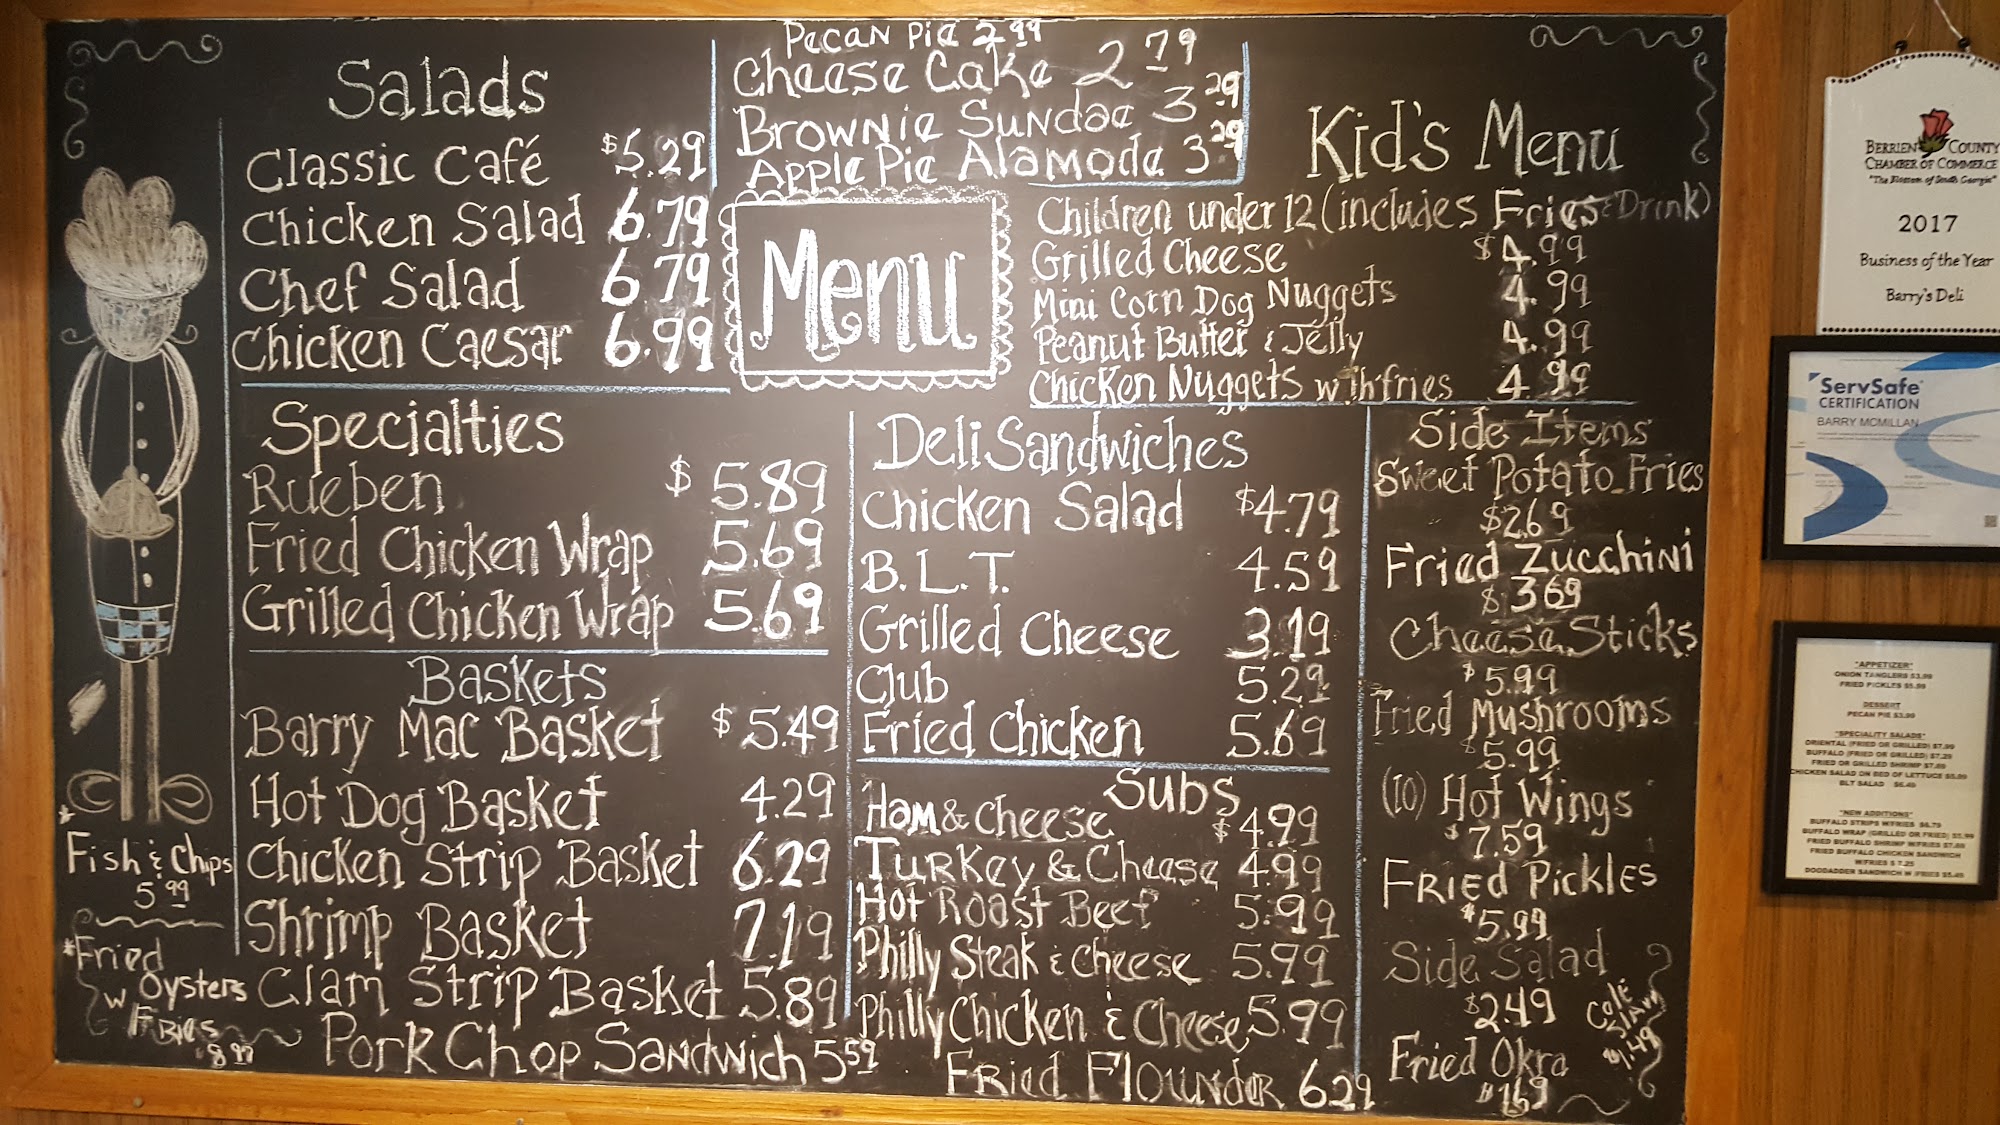 Pecan Pie 2.99
Cheese Cake 2.79
Brownie Sundae 3.29
Apple Pie Alamode 3.29
Salads
Classic Café $5.29
Chicken Salad 6.79
Chef Salad 6.79
Chicken Caesar 6.99
Menu
Kid's Menu
Children under 12 (includes Fries & Drink)
Grilled Cheese $4.99
Mini Corn Dog Nuggets 4.99
Peanut Butter & Jelly 4.99
Chicken Nuggets with fries 4.99
Specialties
Rueben $5.89
Fried Chicken Wrap 5.69
Grilled Chicken Wrap 5.69
Baskets
Barry Mac Basket $5.49
Hot Dog Basket 4.29
Chicken Strip Basket 6.29
Shrimp Basket 7.19
Clam Strip Basket 5.89
Pork Chop Sandwich 5.59
*Fish & Chips
5.99
*Fried
Oysters
w Fries
8.99
Deli Sandwiches
Chicken Salad $4.79
B.L.T. 4.59
Grilled Cheese 3.19
Club 5.29
Fried Chicken 5.69
Subs
Ham & Cheese $4.99
Turkey & Cheese 4.99
Hot Roast Beef 5.99
Philly Steak & Cheese 5.99
Philly Chicken & Cheese 5.99
Fried Flounder 6.29
Side Items
Sweet Potato Fries
$2.69
Fried Zucchini
$3.69
Cheese Sticks
$5.99
Fried Mushrooms
$5.99
(10) Hot Wings
$7.59
Fried Pickles
$5.99
Side Salad
$2.49
Cole
Slaw
$1.49
Fried Okra
$1.69
Berrien County
Chamber of Commerce
"The Blossom of South Georgia"
2017
Business of the Year
Barry's Deli
ServSafe
CERTIFICATION
BARRY MCMILLAN
*APPETIZER*
ONION TANGLERS $3.99
FRIED PICKLES $5.99
DESSERT
PECAN PIE $3.99
*SPECIALITY SALADS*
ORIENTAL (FRIED OR GRILLED) $7.99
BUFFALO (FRIED OR GRILLED) $7.29
FRIED OR GRILLED SHRIMP $7.69
CHICKEN SALAD ON BED OF LETTUCE $5.99
BLT SALAD $6.49
*NEW ADDITIONS*
BUFFALO STRIPS W/FRIES $6.79
BUFFALO WRAP (GRILLED OR FRIED) $5.99
FRIED BUFFALO SHRIMP W/FRIES $7.69
FRIED BUFFALO CHICKEN SANDWICH
W/FRIES $ 7.25
DOODADDER SANDWICH W /FRIES $5.49